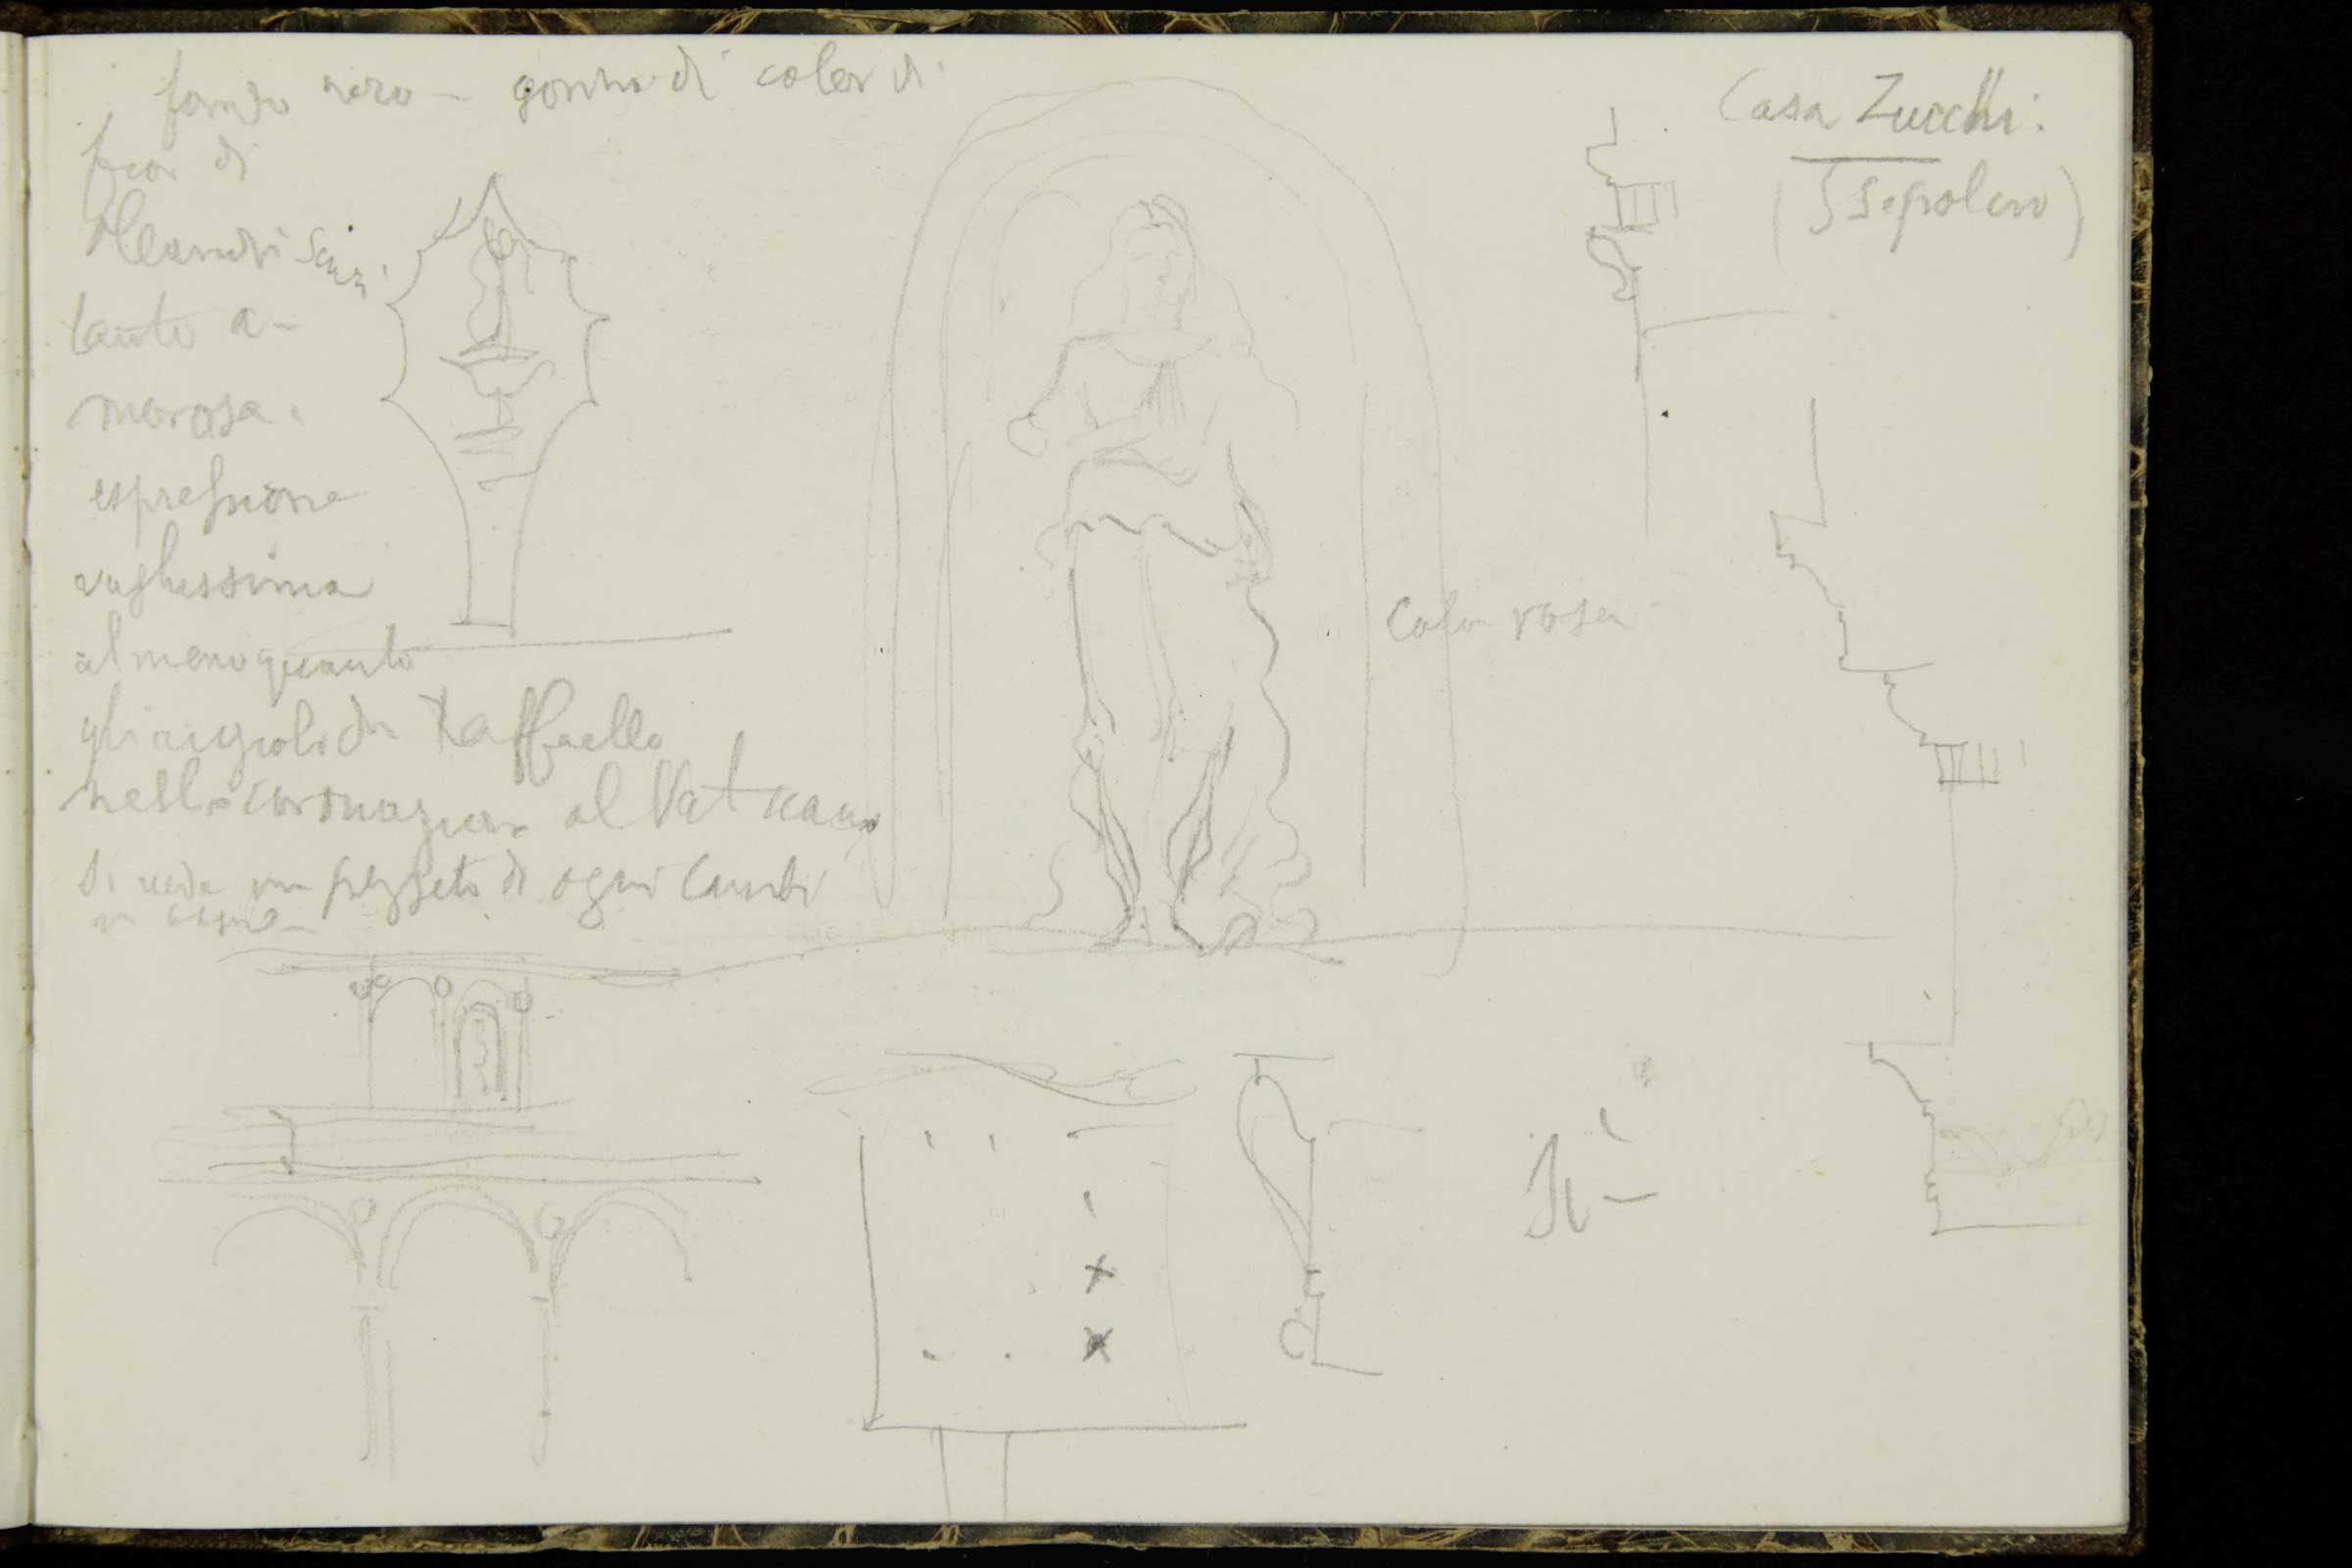 fondo nero – gonna di color di
fior di
oleandri
tanto a-
morosa.
espressione
vaghissima
almeno quanto
gli angioli di Raffaello
nella coronazion al Vaticano
Si vede un pezzeto di ogni
Casa Zucchi:
(S Sepolcro)
Color rosa